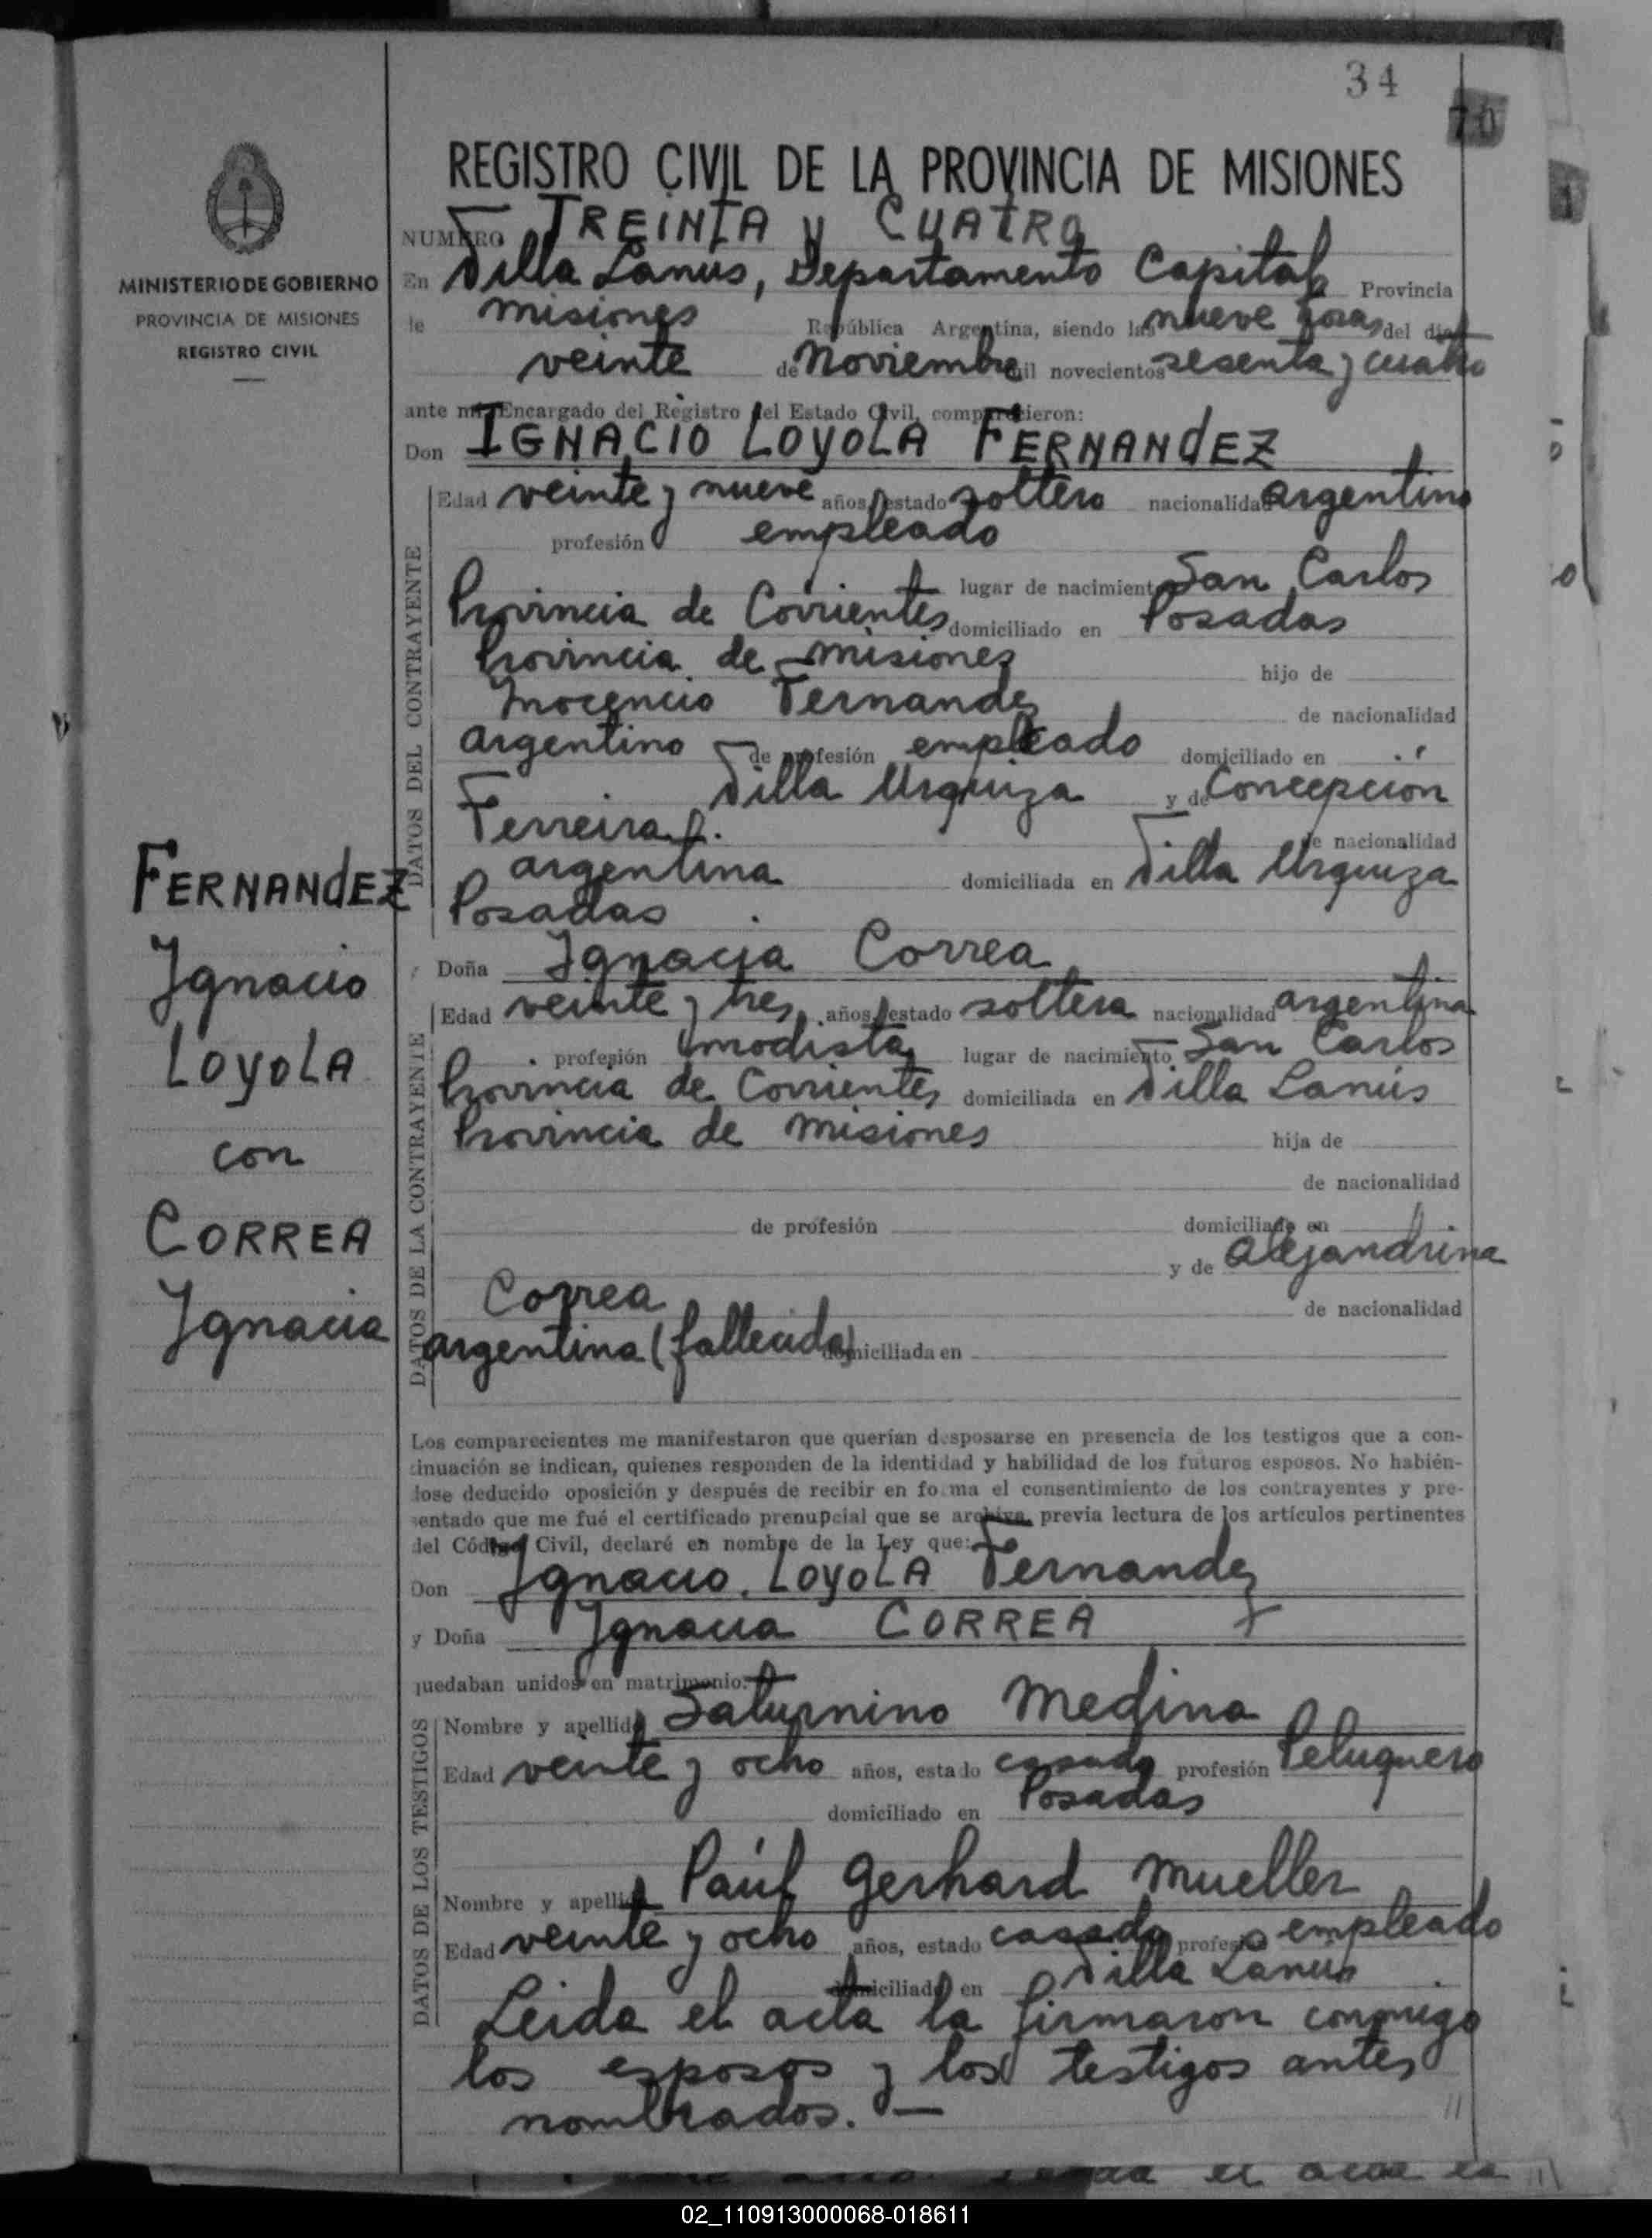 34
70
REGISTRO CIVIL DE LA PROVINCIA DE MISIONES
MINISTERIO DE GOBIERNO
PROVINCIA DE MISIONES
REGISTRO CIVIL
FERNANDEZ
Ignacio
LOYOLA
con
CORREA
Ignacia
NUMERO TREINTA y CUATRO
En Villa Lanús, Departamento Capital Provincia
de misiones República Argentina, siendo las nueve horas del día
veinte de Noviembre mil novecientos sesenta y cuatro
ante mí, Encargado del Registro del Estado Civil, comparecieron:
Don IGNACIO LOYOLA FERNANDEZ
DATOS DEL CONTRAYENTE
Edad veinte y nueve años, estado soltero nacionalidad argentino
profesión empleado
lugar de nacimiento San Carlos
Provincia de Corrientes domiciliado en Posadas
Provincia de misiones hijo de
Inocencio Fernandez de nacionalidad
argentino de profesión empleado domiciliado en
Villa Urquiza y de Concepción
Ferreira de nacionalidad
argentina domiciliada en Villa Urquiza
Posadas
Doña Ignacia Correa
DATOS DE LA CONTRAYENTE
Edad veinte y tres años, estado soltera nacionalidad argentina
profesión modista lugar de nacimiento San Carlos
Provincia de Corrientes domiciliada en Villa Lanús
Provincia de misiones hija de
de nacionalidad
de profesión domiciliado en
y de Alejandrina
Correa de nacionalidad
argentina (fallecida) domiciliada en
Los comparecientes me manifestaron que querían desposarse en presencia de los testigos que a con-
tinuación se indican, quienes responden de la identidad y habilidad de los futuros esposos. No habién-
dose deducido oposición y después de recibir en forma el consentimiento de los contrayentes y pre-
sentado que me fué el certificado prenupcial que se archiva, previa lectura de los artículos pertinentes
del Código Civil, declaré en nombre de la Ley que:
Don Ignacio LOYOLA Fernandez
y Doña Ignacia CORREA
quedaban unidos en matrimonio.
DATOS DE LOS TESTIGOS
Nombre y apellido Saturnino Medina
Edad veinte y ocho años, estado casado profesión Peluquero
domiciliado en Posadas
Nombre y apellido Paúl Gerhard Mueller
Edad veinte y ocho años, estado casado profesión empleado
domiciliado en Villa Lanús
Leida el acta la firmaron conmigo
los esposos y los testigos antes
nombrados. —
02_110913000068-018611